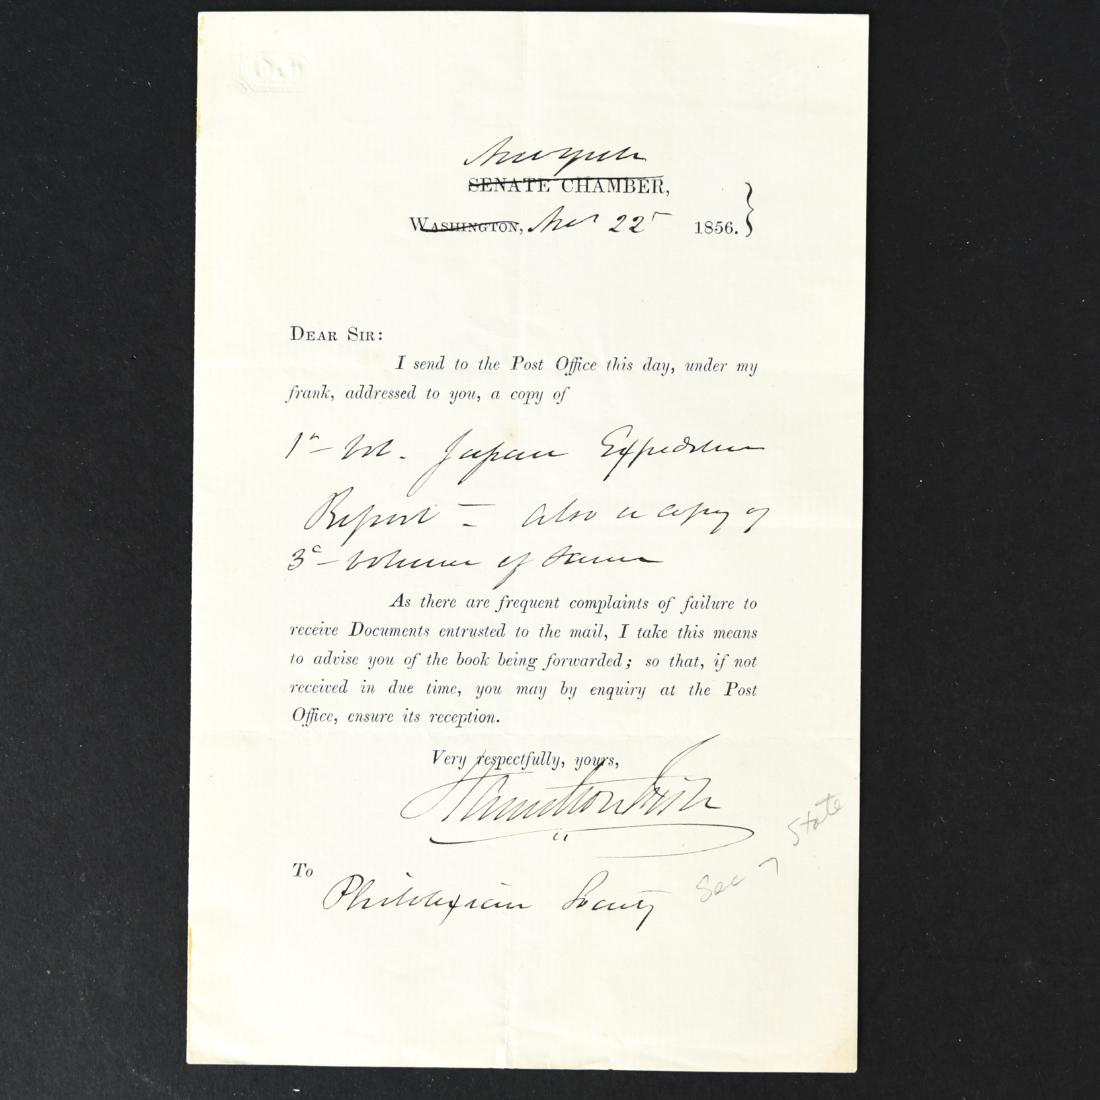 New York
SENATE CHAMBER,
WASHINGTON, Nov 22 1856.
DEAR SIR:
I send to the Post Office this day, under my
frank, addressed to you, a copy of
1st Vol. Japan Expedition
Report – also a copy of
3d Volume of same
As there are frequent complaints of failure to
receive Documents entrusted to the mail, I take this means
to advise you of the book being forwarded; so that, if not
received in due time, you may by enquiry at the Post
Office, ensure its reception.
Very respectfully, yours,
Hamilton Fish
To
Philolexian Society
Sec of State